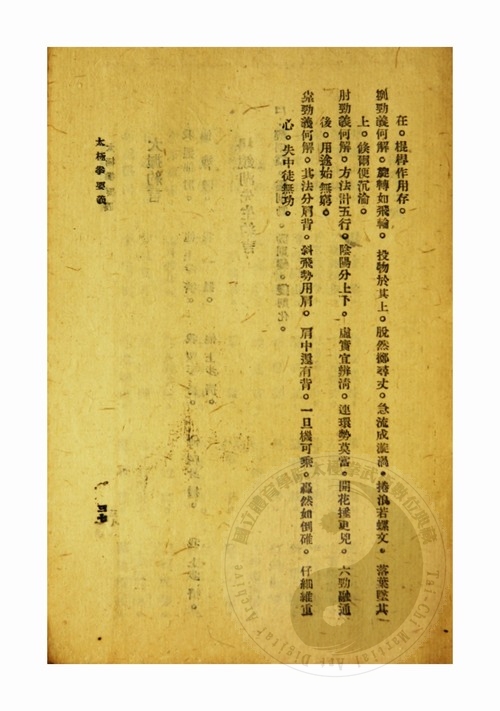 在。槓桿作用存。
挒勁義何解。旋轉如飛輪。投物於其上。脫然擲尋丈。急流成漩渦。捲浪若螺文。落葉墜其
上。倏爾便沉淪。
肘勁義何解。方法計五行。陰陽分上下。虛實宜辨清。連環勢莫當。開花捶更兇。六勁融通
後。用途始無窮。
靠勁義何解。其法分肩背。斜飛勢用肩。肩中還有背。一旦機可乘。轟然如倒碓。仔細維重
心。失中徒無功。
太極拳要義
Tai-Chi Martial Art Digital Archive